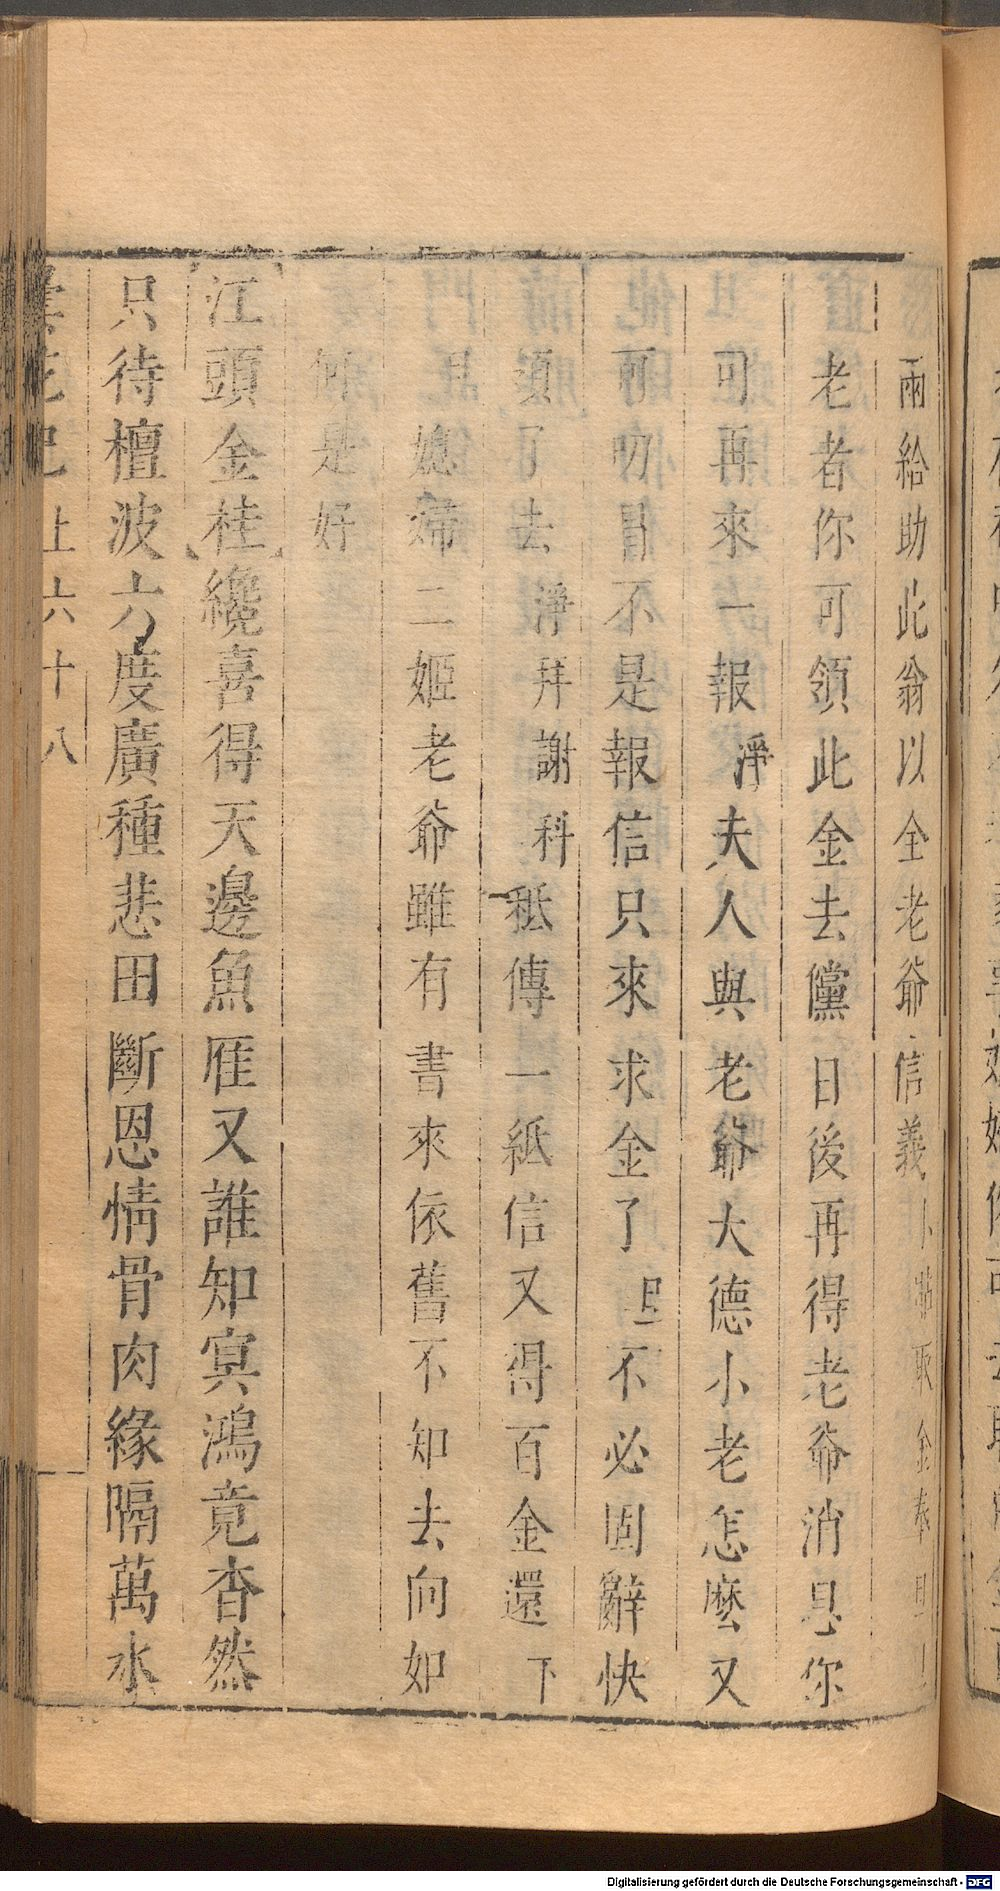 兩給助此翁以全老爺信義小耑取金奉旦
老者你可領此金去儻日後再得老爺消息你
可再來一報淨夫人與老爺大德小老怎麽又
不是報信只來求金了旦不必固辭快
須了去淨拜謝科秪傳一紙信又得百金還下
旦媳婦二姬老爺雖有書來依舊不知去向如
何是好
江頭金桂纔喜得天邊魚雁又誰知冥鴻竟杳然
只待檀波六度廣種悲田斷恩情骨肉緣隔萬水
上六十八
Digitalisierung gefördert durch die Deutsche Forschungsgemeinschaft - DFG